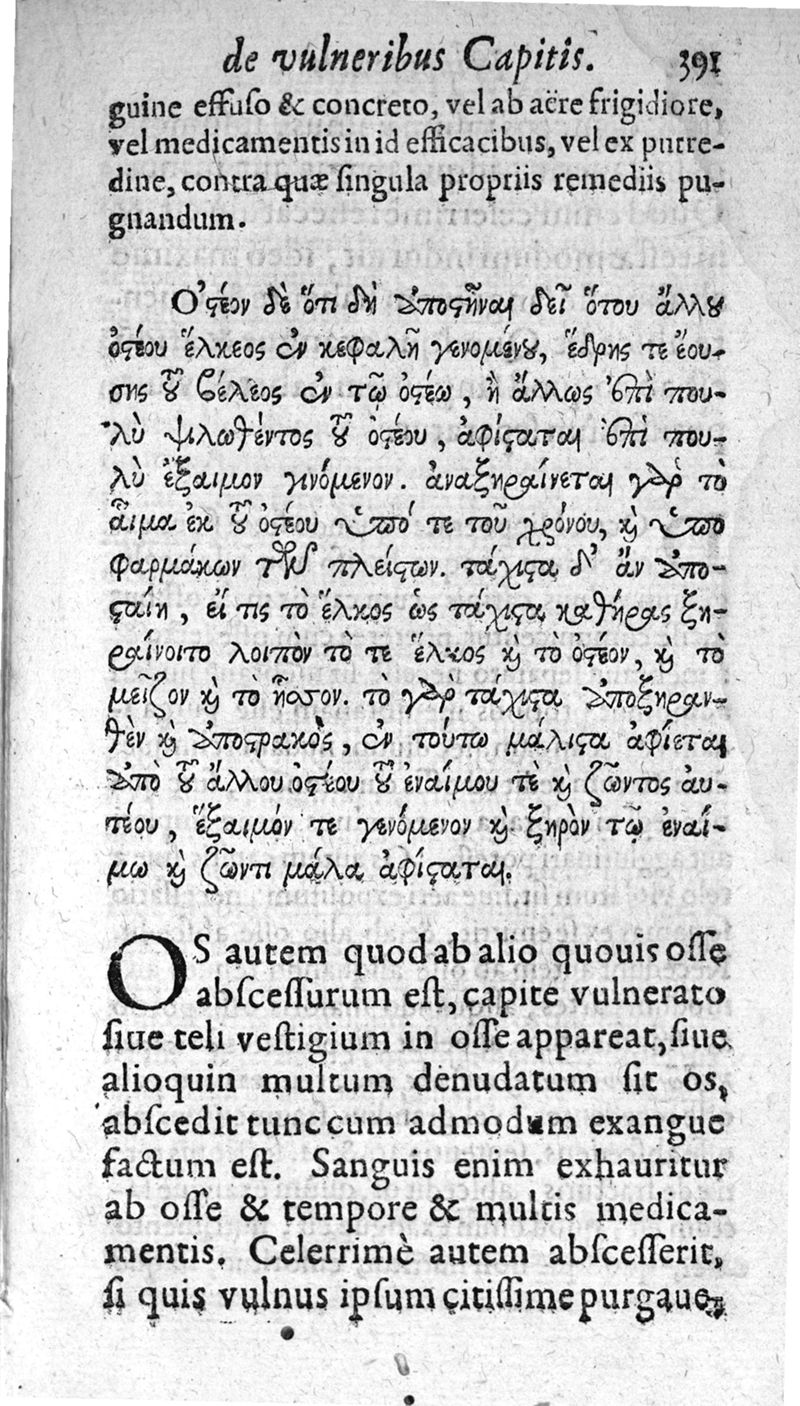 de vulneribus Capitis. 391
guine effuſo & concreto, vel ab aëre frigidiore,
vel medicamentis in id efficacibus, vel ex putre-
dine, contra quæ ſingula propriis remediis pu-
gnandum.
Ὀστέον δὲ ὅτι δὴ ἀποστῆναι δεῖ ὅτου ἄλλου
ὀστέου ἕλκεος ἐν κεφαλῇ γενομένου, ἕδρης τε ἐου-
σης τοῦ βέλεος ἐν τῷ ὀστέω, ἢ ἄλλως ἐπὶ που-
λὺ ψιλωθέντος τοῦ ὀστέου, ἀφίσταται ἐπὶ που-
λὺ ἔξαιμον γινόμενον. ἀναξηραίνεται γὰρ τὸ
αἷμα ἐκ τοῦ ὀστέου ὑπό τε τοῦ χρόνου, καὶ ὑπὸ
φαρμάκων τῶν πλείστων. τάχιστα δ' ἂν ἀπο-
σταίη, εἴ τις τὸ ἕλκος ὡς τάχιστα καθήρας ξη-
ραίνοιτο λοιπὸν τὸ τε ἕλκος καὶ τὸ ὀστέον, καὶ τὸ
μεῖζον καὶ τὸ ἧσσον. τὸ γὰρ τάχιστα ἀποξηραν-
θὲν καὶ ἀποστρακὸς, ἐν τούτω μάλιστα ἀφίεται
ἀπὸ τοῦ ἄλλου ὀστέου τοῦ ἐναίμου τὲ καὶ ζῶντος αυ-
τέου, ἔξαιμόν τε γενόμενον καὶ ξηρὸν τῷ ἐναί-
μω καὶ ζῶντι μάλα ἀφίσταται.
OS autem quod ab alio quouis oſſe
abſceſſurum eſt, capite vulnerato
ſiue teli veſtigium in oſſe appareat, ſiue
alioquin multum denudatum ſit os,
abſcedit tunc cum admodum exangue
factum eſt. Sanguis enim exhauritur
ab oſſe & tempore & multis medica-
mentis. Celerrimè autem abſceſſerit,
ſi quis vulnus ipſum citiſſime purgaue-